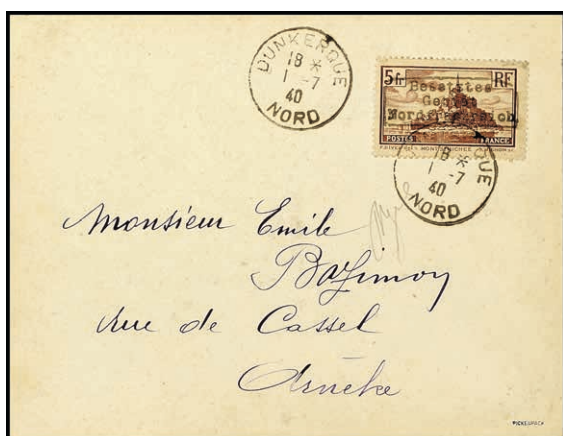 DUNKERQUE
18 *
1 -7
40
NORD
5fr RF
Besetztes
Gebiet
Nordfrankreich
POSTES FRANCE
18 *
1 -7
40
NORD
Monsieur Emile
rue de Cassel
Arnèke